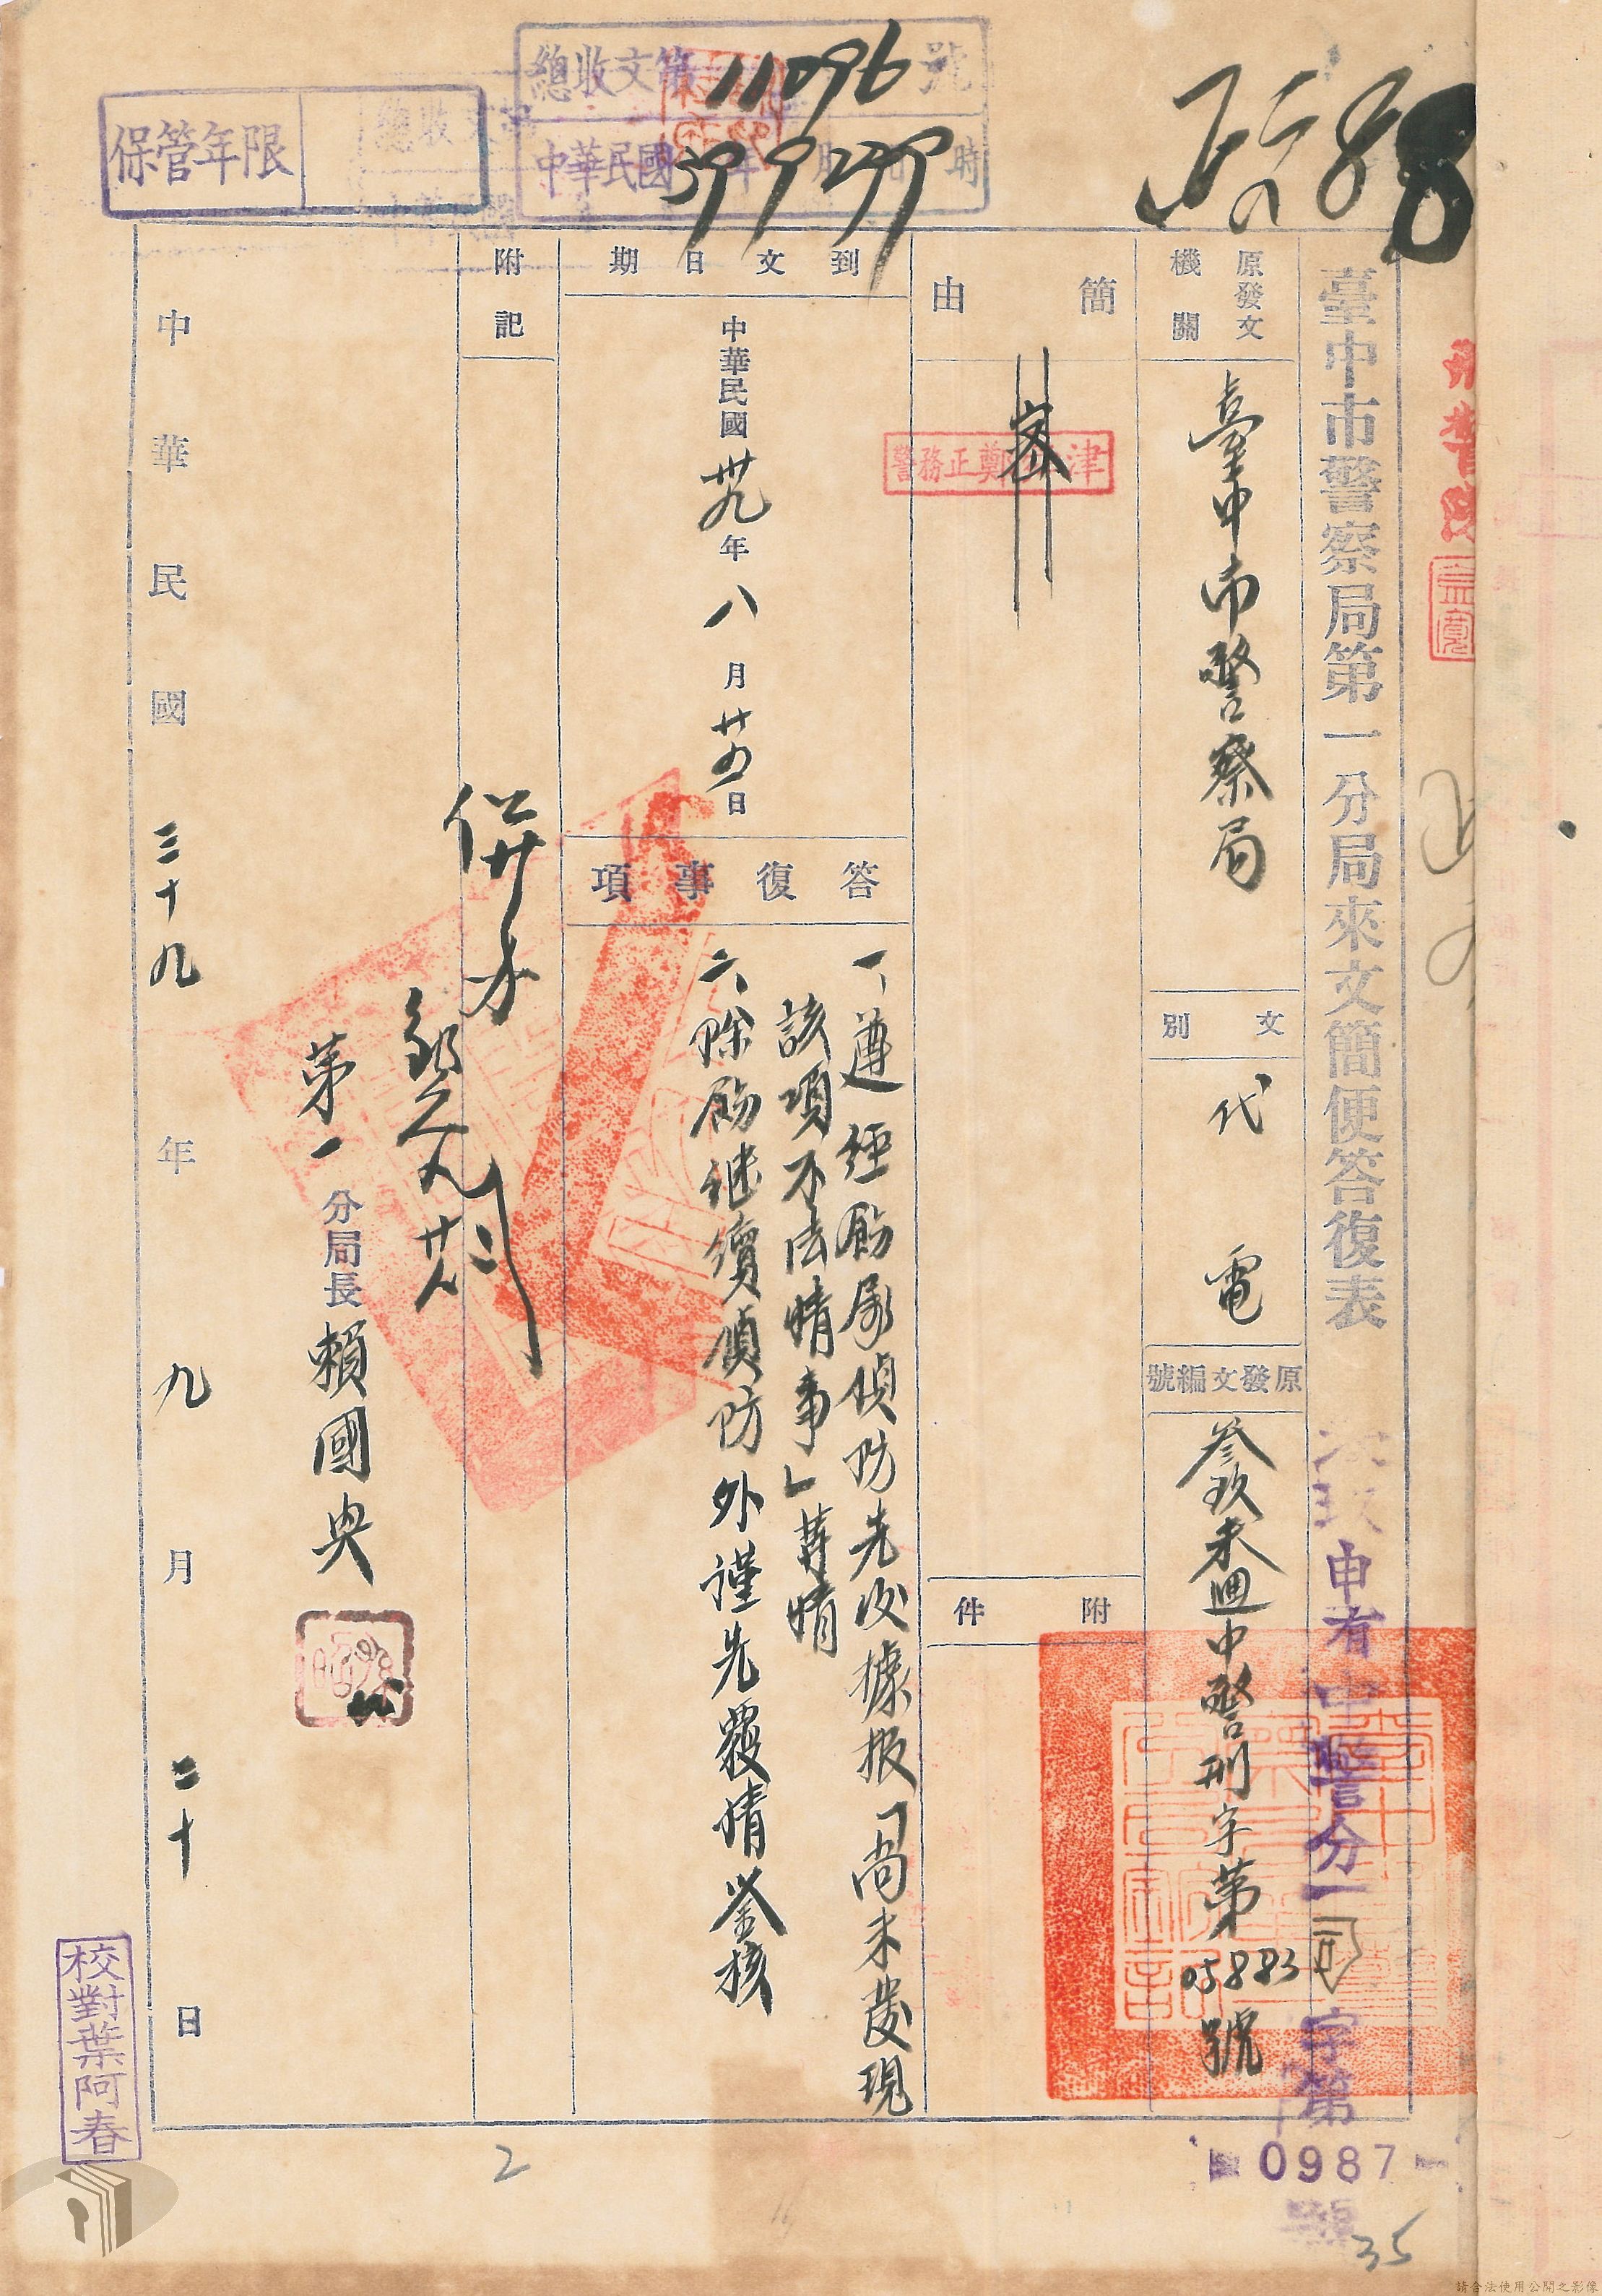 總收文第11096號
中華民國39年9月29日 時
保管年限
臺中市警察局第一分局來文簡便答復表
申有中警分一司字第
0987
號
原發文機關
臺中市警察局
文別
代電
原發文編號
參玖未迴中警刑字第05883號
簡由
密
警務正鄭 津
附件
到文日期
中華民國卅九年八月廿四日
答復事項
一、遵經飭屬偵防去後據报「尚未發現
該項不法情事」等情
二、除飭继續偵防外謹先覆請鉴核
附記
併办
第一分局長賴國興
中華民國三十九年九月二十日
校對葉阿春
2
35
請合法使用公開之影像